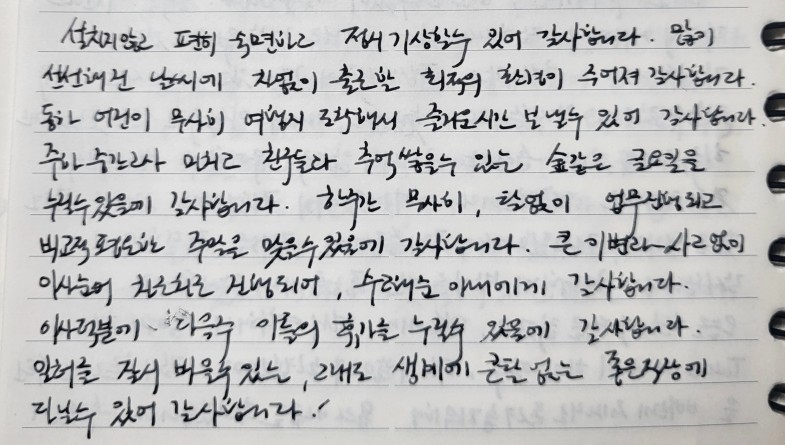 설치지않고 편히 숙면하고 정시 기상할수 있어 감사합니다. 많이
선선해진 날씨에 차없이 출근할 최적의 환경이 주어져 감사합니다.
동하 어린이 무사히 여행지 도착해서 즐거운시간 보낼수 있어 감사합니다.
주하 중간고사 마치고 친구들과 추억쌓을수 있는 金같은 금요일을
누릴수있음에 감사합니다. 한주간 무사히, 탈없이 업무진행되고
비교적 평온한 주말을 맞을수있음에 감사합니다. 큰 이변과 사고없이
이사준비 차근차근 진행되어, 수고해준 아내에게 감사합니다.
이사덕분에 다음주 이틀의 휴가를 누릴수 있음에 감사합니다.
일허를 잠시 비울수 있는, 그래도 생계에 큰탈 없는 좋은직장에
다닐수 있어 감사합니다.